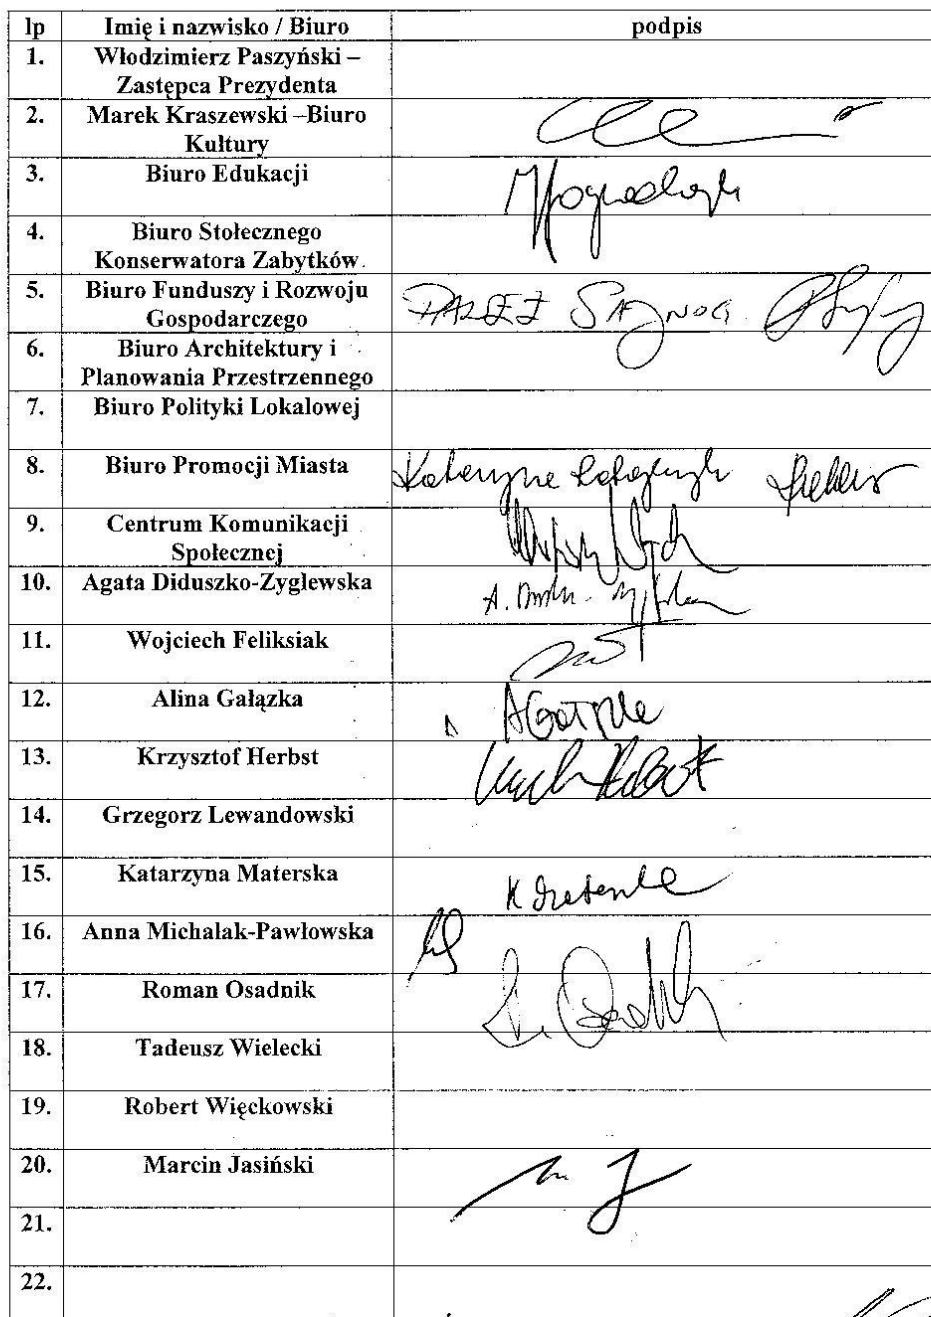 lp Imię i nazwisko / Biuro podpis
1. Włodzimierz Paszyński –
Zastępca Prezydenta
2. Marek Kraszewski –Biuro
Kultury
3. Biuro Edukacji
4. Biuro Stołecznego
Konserwatora Zabytków
5. Biuro Funduszy i Rozwoju
Gospodarczego
6. Biuro Architektury i
Planowania Przestrzennego
7. Biuro Polityki Lokalowej
8. Biuro Promocji Miasta
9. Centrum Komunikacji
Społecznej
10. Agata Diduszko-Zyglewska
11. Wojciech Feliksiak
12. Alina Gałązka
13. Krzysztof Herbst
14. Grzegorz Lewandowski
15. Katarzyna Materska
16. Anna Michalak-Pawłowska
17. Roman Osadnik
18. Tadeusz Wielecki
19. Robert Więckowski
20. Marcin Jasiński
21.
22.